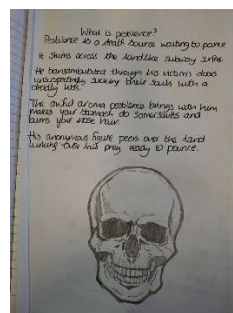 What is pestilence?
Pestilence is a death source waiting to pounce
It skims across the land like subway surfers.
He transmitted through his victim's doors
unsuspectingly, sucking their souls with a
deadly kiss.
The awful aroma pestilence brings with him
makes your stomach do somersaults and
burns your nose hair.
His anonymous figure peers over the land
lurking over his prey ready to pounce.